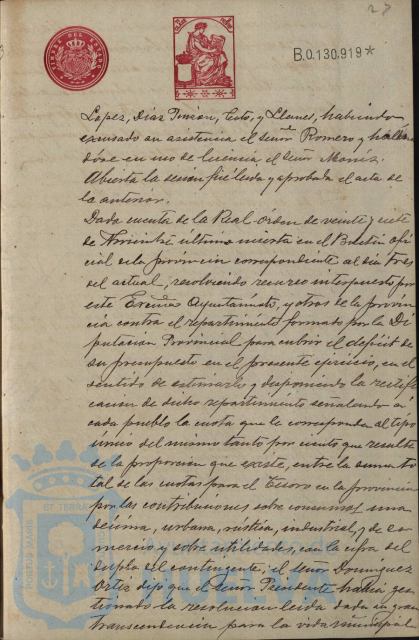 27
TIMBRE DEL ESTADO
B.0.130,919*
Lopez, Diaz Pinzon, Coto, y Llanes, habiendo
excusado su asistencia el señor Romero y hallan
dose en uso de licencia el Señor Moniz.
Abierta la sesion fué leida y aprobada el acta de
la anterior.
Dada cuenta de la Real orden de veinte y siete
de Noviembre último inserta en el Boletin ofi
cial de la provincia correspondiente al dia tres
del actual, resolviendo recurso interpuesto por
este Excmo Ayuntamiento, y otros de la provin
cia contra el repartimiento formado por la Di
putacion Provincial para cubrir el deficit de
su presupuesto en el presente ejercicio, en el
sentido de estimarlo y disponiendo la rectifi
cacion de dicho repartimiento señalando a
cada pueblo la cuota que le corresponda al tipo
único del mismo tanto por ciento que resulte
de la proporcion que existe, entre la suma to
tal de las cuotas para el Tesoro en la provincia
por las contribuciones sobre consumos una
decima, urbana, rustica, industrial, y de co
mercio y sobre utilidades, con la cifra del
duplo del contingente; el señor Dominguez
Ortiz dijo que el Señor Presidente habia ges
tionado la resolucion leida dada su gran
transcendencia para la vida municipal